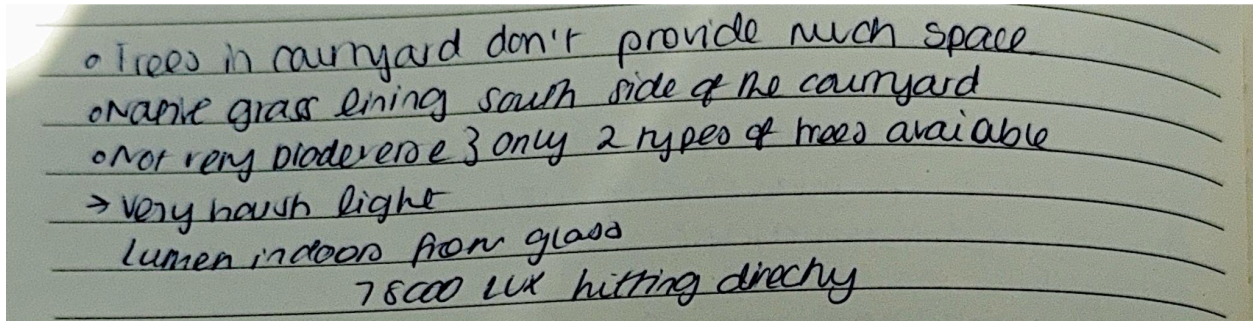 • Trees in courtyard don't provide much space
• Native grass lining south side of the courtyard
• Not very biodeverse } only 2 types of trees avaiable
→ very harsh light
lumen indoors from glass
78000 LUX hitting directly